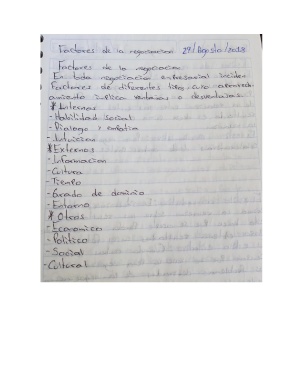 Factores de la negociacion 29/Agosto/2018
Factores de la negociacion
En toda negociacion empresarial inciden
Factores de diferentes tipos cuyo aprovech
amiento implica ventajas o desventajas.
* Internos
- Habilidad Social
- Dialogo y empatia
- Intuicion
* Externos
- Informacion
- Cultura
- Tiempo
- Grado de dominio
- Entorno
* Otros
- Economico
- Politico
- Social
- Cultural